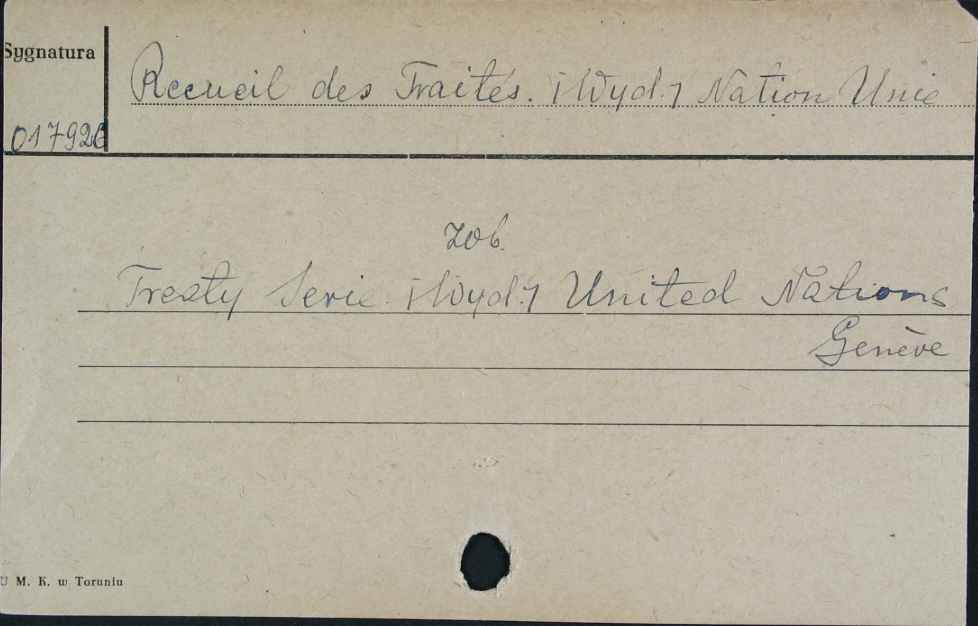 Sygnatura
Recueil des Traités. [Wyd.] Nation Unie
017926
zob.
Treaty Serie. [Wyd.] United Nations
Genève
U M. K. w Toruniu